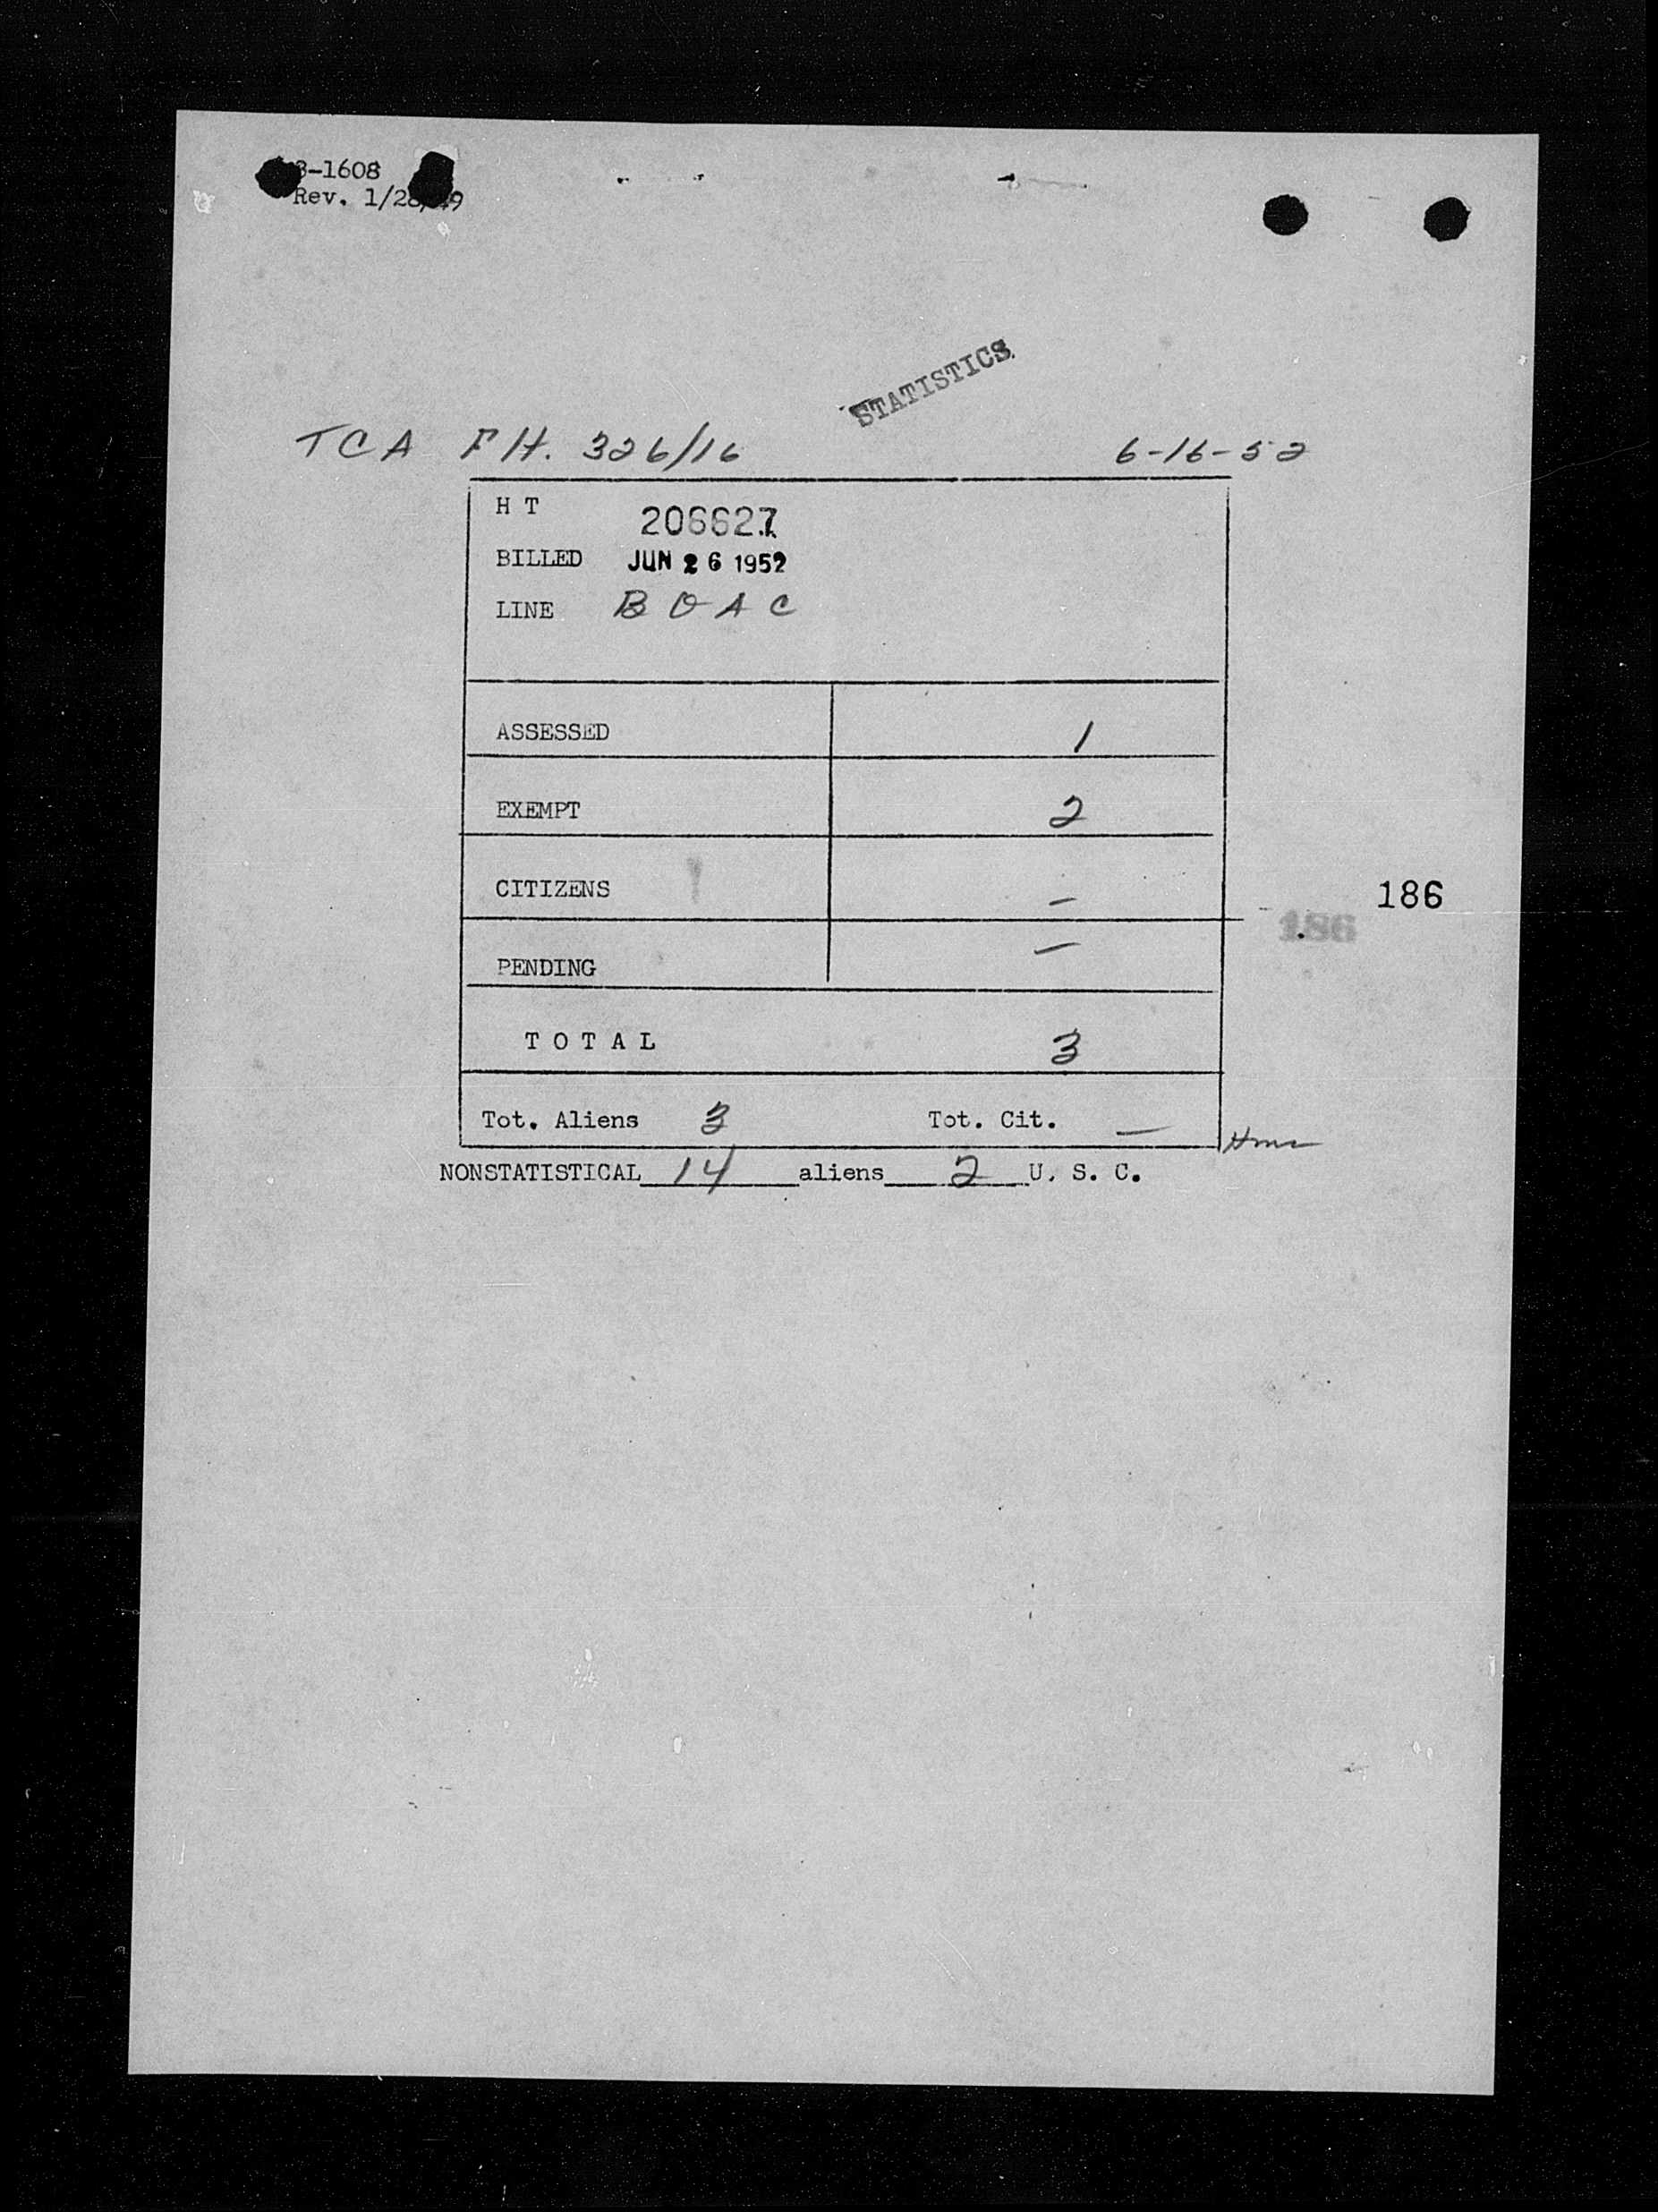 3-1608
Rev. 1/28/49
STATISTICS
TCA Flt. 326/16 6-16-52
H T 206627
BILLED JUN 26 1952
LINE BOAC
ASSESSED 1
EXEMPT 2
CITIZENS —
186
186
PENDING —
TOTAL 3
Tot. Aliens 3 Tot. Cit. —
NONSTATISTICAL 14 aliens 2 U. S. C.